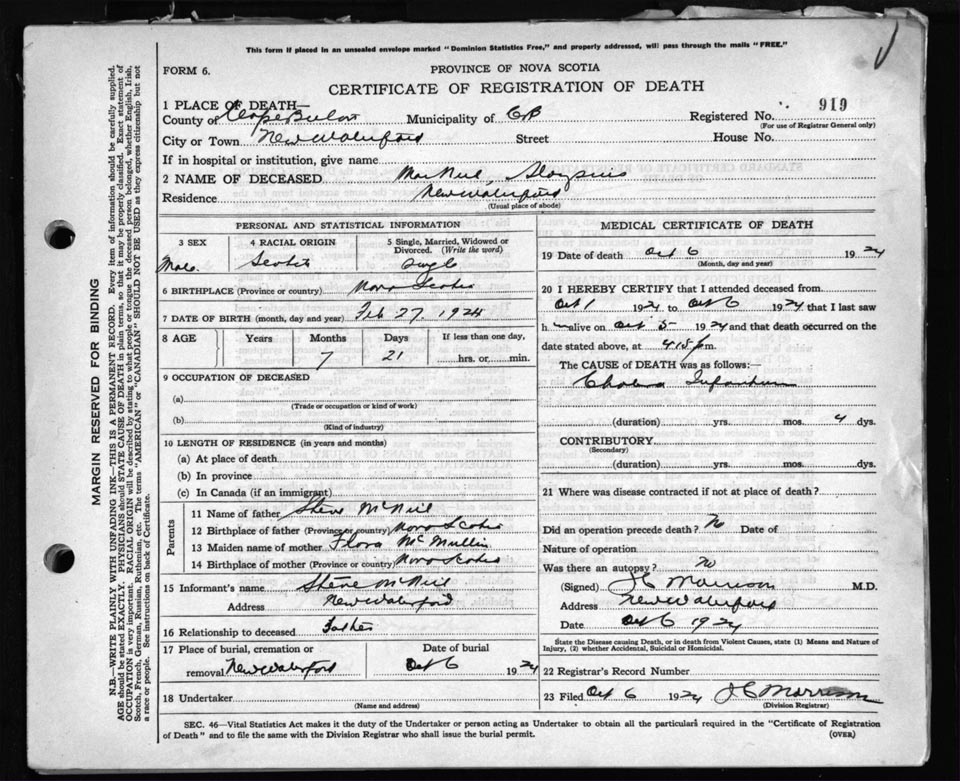 This form if placed in an unsealed envelope marked "Dominion Statistics Free," and properly addressed, will pass through the mails "FREE."
FORM 6.
PROVINCE OF NOVA SCOTIA
CERTIFICATE OF REGISTRATION OF DEATH
1 PLACE OF DEATH—
919
County of Cape Breton Municipality of CB Registered No.
(For use of Registrar General only)
City or Town New Waterford Street House No.
If in hospital or institution, give name
2 NAME OF DECEASED MacNeil,
Residence New Waterford
(Usual place of abode)
PERSONAL AND STATISTICAL INFORMATION
3 SEX 4 RACIAL ORIGIN 5 Single, Married, Widowed or Divorced. (Write the word)
Male Scotch Single
6 BIRTHPLACE (Province or country) Nova Scotia
7 DATE OF BIRTH (month, day and year) Feb 27. 1924
8 AGE Years Months Days If less than one day,
7 21 hrs. or min.
9 OCCUPATION OF DECEASED
(a)
(Trade or occupation or kind of work)
(b)
(Kind of industry)
10 LENGTH OF RESIDENCE (in years and months)
(a) At place of death
(b) In province
(c) In Canada (if an immigrant)
Parents
11 Name of father Steve McNeil
12 Birthplace of father (Province or country) Nova Scotia
13 Maiden name of mother Flora McMullin
14 Birthplace of mother (Province or country) Nova Scotia
15 Informant's name Steve McNeil
Address New Waterford
16 Relationship to deceased Father
17 Place of burial, cremation or Date of burial
removal New Waterford Oct 6 1924
18 Undertaker
(Name and address)
MEDICAL CERTIFICATE OF DEATH
19 Date of death Oct 6 1924
(Month, day and year)
20 I HEREBY CERTIFY that I attended deceased from
Oct 1 1924 to Oct 6 1924 that I last saw
h alive on Oct 5 1924 and that death occurred on
date stated above, at 4.15 p m.
The CAUSE of DEATH was as follows:
Cholera Infantum
(duration) yrs. mos. 4 dys.
CONTRIBUTORY
(Secondary)
(duration) yrs. mos. dys.
21 Where was disease contracted if not at place of death?
Did an operation precede death? No Date of
Nature of operation
Was there an autopsy? No
(Signed) J C Morrison M.D.
Address New Waterford
Date Oct 6 1924
State the Disease causing Death, or in death from Violent Causes, state (1) Means and Nature of
Injury, (2) whether Accidental, Suicidal or Homicidal.
22 Registrar's Record Number
23 Filed Oct 6 1924 J C Morrison
(Division Registrar)
SEC. 46—Vital Statistics Act makes it the duty of the Undertaker or person acting as Undertaker to obtain all the particulars required in the "Certificate of Registration
of Death" and to file the same with the Division Registrar who shall issue the burial permit. (OVER)
MARGIN RESERVED FOR BINDING
N.B.—WRITE PLAINLY WITH UNFADING INK—THIS IS A PERMANENT RECORD. Every item of information should be carefully supplied.
AGE should be stated EXACTLY. PHYSICIANS should STATE CAUSE OF DEATH in plain terms, so that it may be properly classified. Exact statement of
OCCUPATION is very important. RACIAL ORIGIN will be described by stating to what people or tongue the deceased person belonged, whether English, Irish,
Scotch, French, German, Russian, Ruthenian, etc. The terms "AMERICAN" or "CANADIAN" SHOULD NOT BE USED as they express citizenship but not
a race or people. See instructions on back of Certificate.